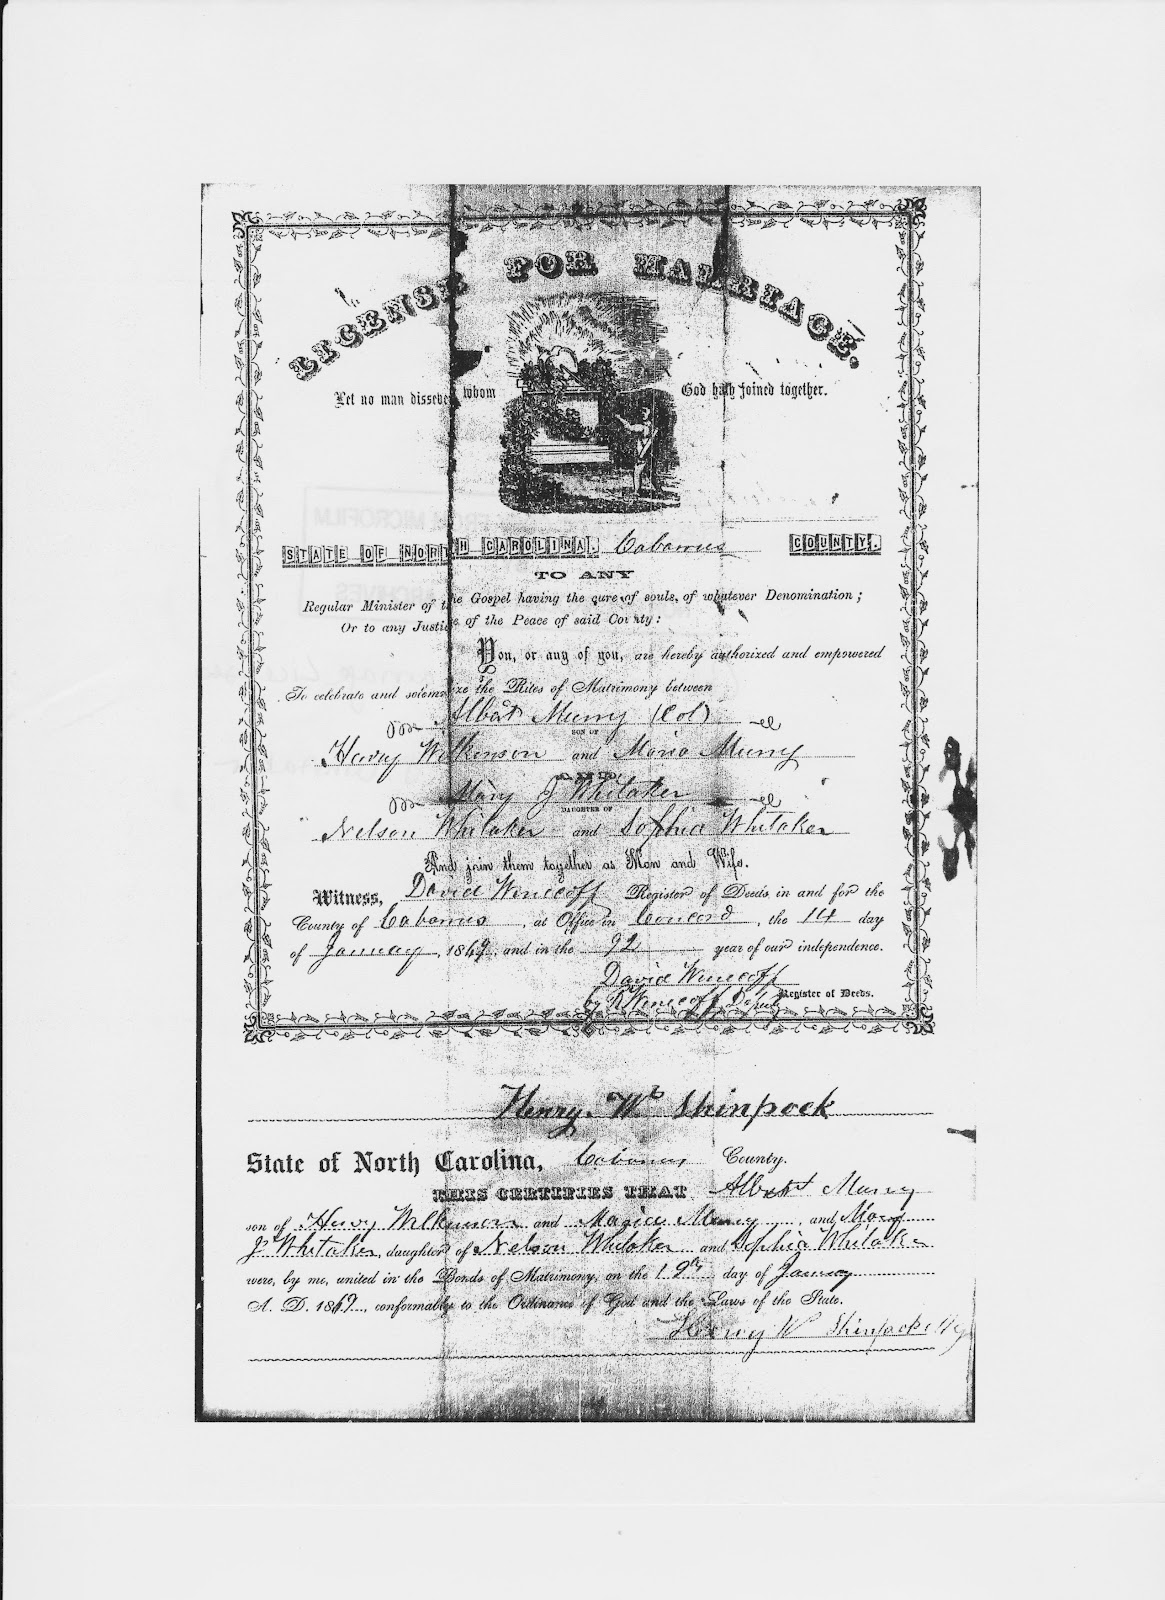 LICENSE FOR MARRIAGE.
Let no man dissever whom God hath joined together.
STATE OF NORTH CAROLINA. Cabarrus COUNTY.
TO ANY
Regular Minister of the Gospel having the cure of souls, of whatever Denomination;
Or to any Justice of the Peace of said County:
You, or any of you, are hereby authorized and empowered
To celebrate and solemnize the Rites of Matrimony between
Albert Murry (Col)
SON OF
Henry Wilkinson and Maria Murry
AND
Mary J Whitaker
DAUGHTER OF
Nelson Whitaker and Sophia Whitaker
And join them together as Man and Wife.
Witness, David Winecoff Register of Deeds in and for the
County of Cabarrus, at Office in Concord, the 14 day
of January, 1869, and in the 92 year of our independence.
David Winecoff
by R Winecoff Deputy Register of Deeds.
Henry. W Shinpock
State of North Carolina, Cabarrus County.
THIS CERTIFIES THAT Albert Murry
son of Henry Wilkinson and Maria Murry, and Mary
J Whitaker, daughter of Nelson Whitaker and Sophia Whitaker
were, by me, united in the Bonds of Matrimony, on the day of January
A. D. 1869, conformably to the Ordinance of God and the Laws of the State.
Henry W Shinpock